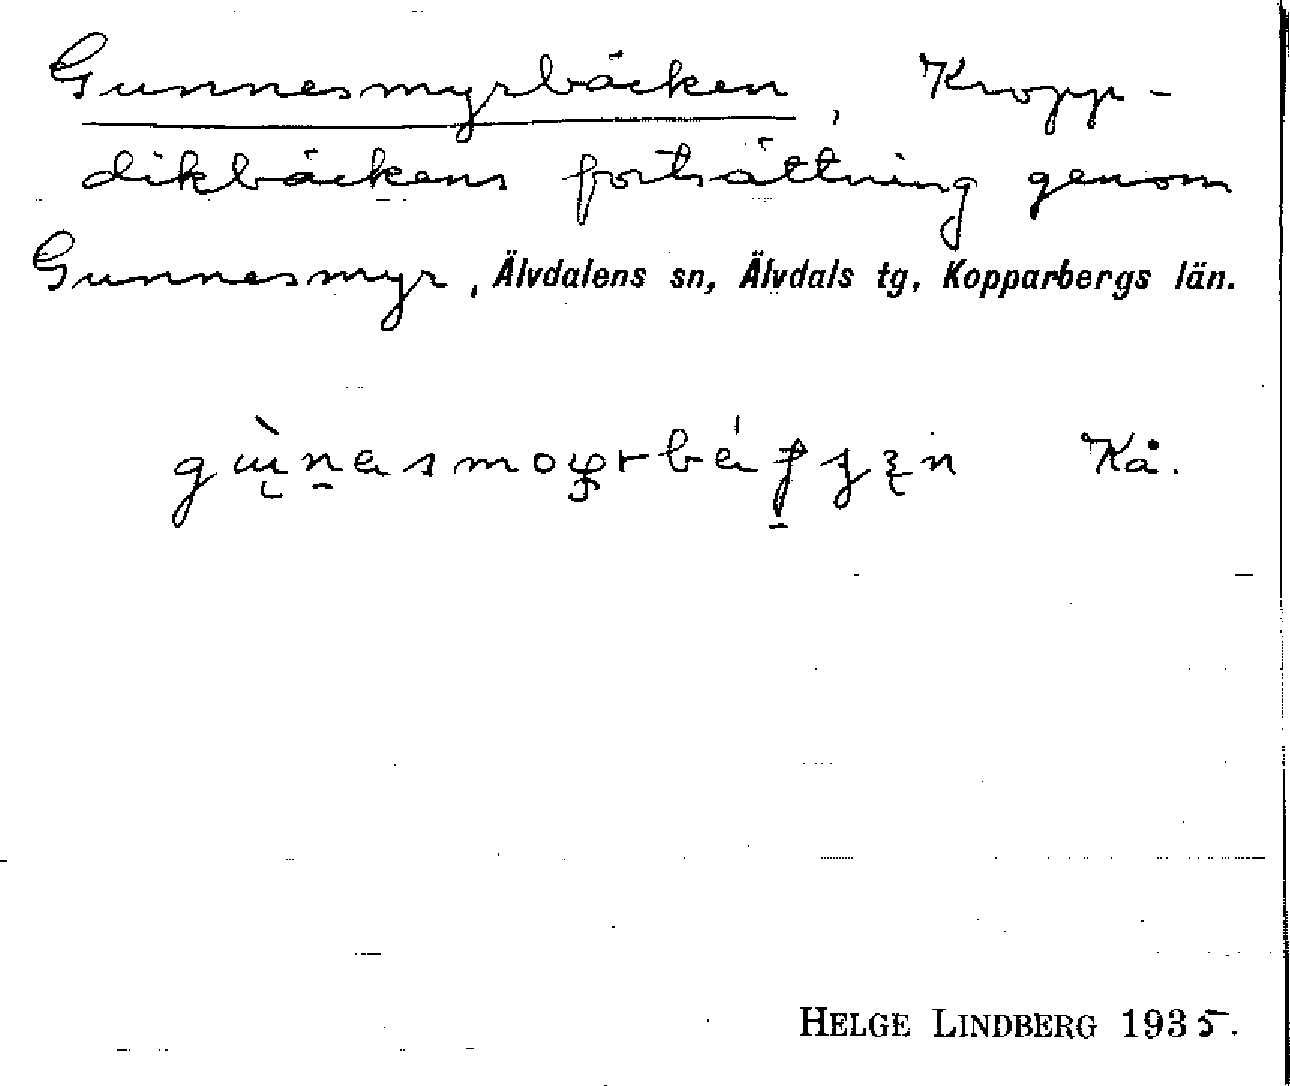 Gunnesmyrbäcken, Kropp-
dikbäckens fortsättning genom
Gunnesmyr, Älvdalens sn, Älvdals tg, Kopparbergs län.
Kå.
HELGE LINDBERG 1935.